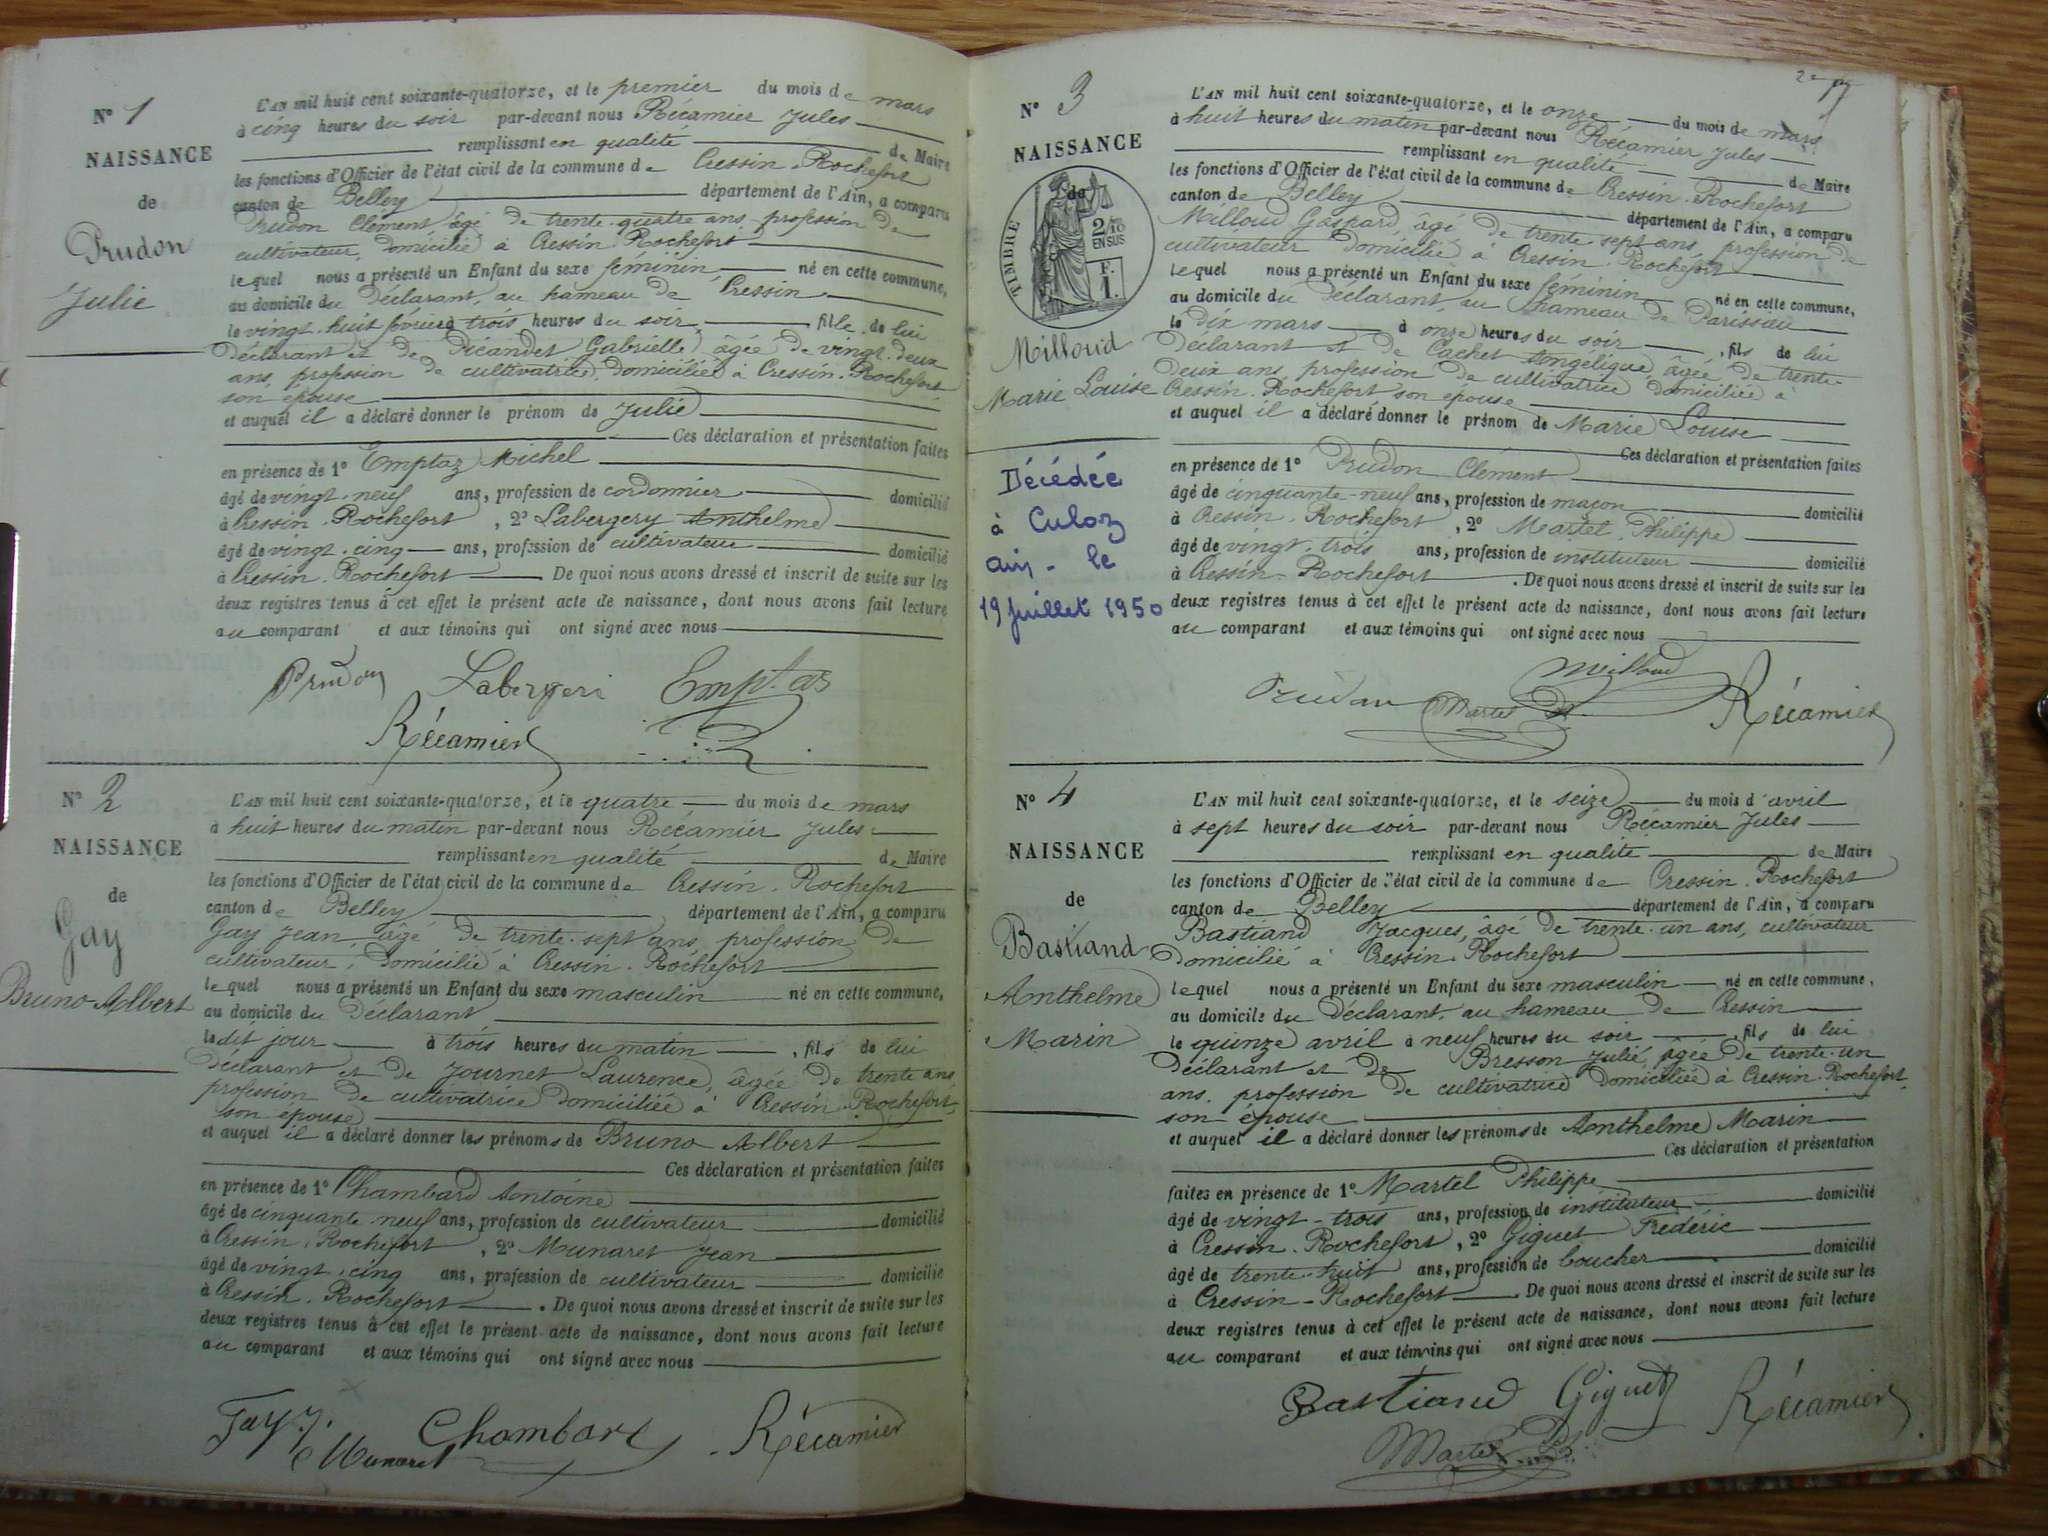 N° 1
NAISSANCE
de
Prudon
Julie
L'AN mil huit cent soixante-quatorze, et le premier du mois de mars
à cinq heures du soir par-devant nous Récamier Jules
remplissant en qualité de Maire
les fonctions d'Officier de l'état civil de la commune de Cressin-Rochefort
canton de Belley département de l'Ain, a comparu
Prudon Clément, âgé de trente-quatre ans, profession de
cultivateur, domicilié à Cressin-Rochefort
lequel nous a présenté un Enfant du sexe féminin né en cette commune,
au domicile du Déclarant, au hameau de Cressin
le vingt-huit février à trois heures du soir, fille de lui
Déclarant et de Picandet Gabrielle, âgée de vingt-deux
ans, profession de cultivatrice, domiciliée à Cressin-Rochefort
son épouse
et auquel il a déclaré donner le prénom de Julie
Ces déclaration et présentation faites
en présence de 1° Emptaz Michel
âgé de vingt-neuf ans, profession de cordonnier domicilié
à Cressin-Rochefort, 2° Labergery Anthelme
âgé de vingt-cinq ans, profession de cultivateur domicilié
à Cressin-Rochefort De quoi nous avons dressé et inscrit de suite sur les
deux registres tenus à cet effet le présent acte de naissance, dont nous avons fait lecture
au comparant et aux témoins qui ont signé avec nous
Prudon Labergeri Emptas
Récamier
N° 2
NAISSANCE
de
Gay
Bruno-Albert
L'AN mil huit cent soixante-quatorze, et le quatre du mois de mars
à huit heures du matin par-devant nous Récamier Jules
remplissant en qualité de Maire
les fonctions d'Officier de l'état civil de la commune de Cressin-Rochefort
canton de Belley département de l'Ain, a comparu
Gay Jean âgé de trente-sept ans, profession de
cultivateur, domicilié à Cressin-Rochefort
lequel nous a présenté un Enfant du sexe masculin né en cette commune,
au domicile du Déclarant
le dit jour à trois heures du matin, fils de lui
Déclarant et de Journet Laurence, âgée de trente ans,
profession de cultivatrice domiciliée à Cressin-Rochefort,
son épouse
et auquel il a déclaré donner les prénoms de Bruno Albert
Ces déclaration et présentation faites
en présence de 1° Chambard Antoine
âgé de cinquante-neuf ans, profession de cultivateur domicilié
à Cressin-Rochefort, 2° Munaret Jean
âgé de vingt-cinq ans, profession de cultivateur domicilié
à Cressin-Rochefort. De quoi nous avons dressé et inscrit de suite sur les
deux registres tenus à cet effet le présent acte de naissance, dont nous avons fait lecture
au comparant et aux témoins qui ont signé avec nous
Gay J. Munaret Chambard Récamier
N° 3
NAISSANCE
de
TIMBRE
2/10
EN SUS
F.
1.
Milloud
Marie Louise
Décédée
à Culoz
ain - le
19 juillet 1950
L'AN mil huit cent soixante-quatorze, et le onze du mois de mars
à huit heures du matin par-devant nous Récamier Jules
remplissant en qualité de Maire
les fonctions d'Officier de l'état civil de la commune de Cressin-Rochefort
canton de Belley département de l'Ain, a comparu
Milloud Gaspard, âgé de trente-sept ans, profession de
cultivateur domicilié à Cressin-Rochefort
lequel nous a présenté un Enfant du sexe féminin né en cette commune,
au domicile du Déclarant, au hameau de Parissieu
le dix mars à onze heures du soir, fils de lui
Déclarant et de Cachet Angélique âgée de trente-
deux ans, profession de cultivatrice domiciliée à
Cressin-Rochefort son épouse
et auquel il a déclaré donner le prénom de Marie Louise
Ces déclaration et présentation faites
en présence de 1° Prudon Clément
âgé de cinquante-neuf ans, profession de maçon domicilié
à Cressin-Rochefort, 2° Martel Philippe
âgé de vingt-trois ans, profession de instituteur domicilié
à Cressin-Rochefort. De quoi nous avons dressé et inscrit de suite sur les
deux registres tenus à cet effet le présent acte de naissance, dont nous avons fait lecture
au comparant et aux témoins qui ont signé avec nous
Milloud
Prudon Martel Récamier
N° 4
NAISSANCE
de
Bastiand
Anthelme
Marin
L'AN mil huit cent soixante-quatorze, et le seize du mois d'avril
à sept heures du soir par-devant nous Récamier Jules
remplissant en qualité de Maire
les fonctions d'Officier de l'état civil de la commune de Cressin-Rochefort
canton de Belley département de l'Ain, a comparu
Bastiand Jacques, âgé de trente-un ans, cultivateur
domicilié à Cressin-Rochefort
lequel nous a présenté un Enfant du sexe masculin né en cette commune,
au domicile du Déclarant, au hameau de Cressin
le quinze avril à neuf heures du soir, fils de lui
Déclarant et de Bresson Julie, âgée de trente-un
ans, profession de cultivatrice domiciliée à Cressin-Rochefort,
son épouse
et auquel il a déclaré donner les prénoms de Anthelme Marin
Ces déclaration et présentation
faites en présence de 1° Martel Philippe
âgé de vingt-trois ans, profession de instituteur domicilié
à Cressin-Rochefort, 2° Giguet Frédéric
âgé de trente-huit ans, profession de boucher domicilié
à Cressin-Rochefort. De quoi nous avons dressé et inscrit de suite sur les
deux registres tenus à cet effet le présent acte de naissance, dont nous avons fait lecture
au comparant et aux témoins qui ont signé avec nous
Bastiand Giguet Récamier
Martel